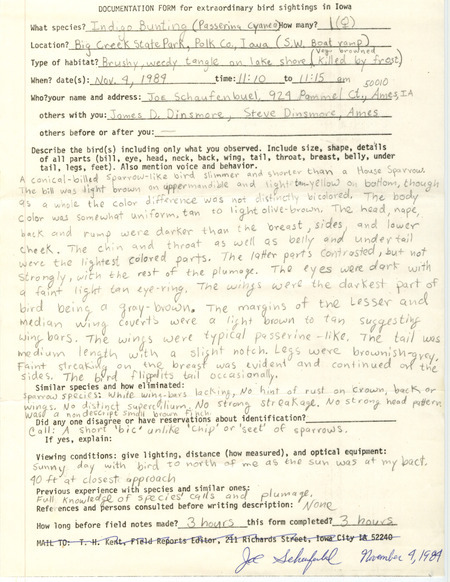 DOCUMENTATION FORM for extraordinary bird sightings in Iowa
What species? Indigo Bunting (Passerina cyanea) How many? 1(♀)
Location? Big Creek State Park, Polk Co., Iowa (S.W. Boat ramp)
Type of habitat? Brushy, weedy tangle on lake shore (veg. browned killed by frost)
When? date(s): Nov. 4, 1984 time: 11:10 to 11:15 am
Who? your name and address: Joe Schaufenbuel, 924 Pammel Ct., Ames, IA 50010
others with you: James D. Dinsmore, Steve Dinsmore, Ames
others before or after you:
Describe the bird(s) including only what you observed. Include size, shape, details
of all parts (bill, eye, head, neck, back, wing, tail, throat, breast, belly, under
tail, legs, feet). Also mention voice and behavior.
A conical-billed sparrow-like bird slimmer and shorter than a House Sparrow.
The bill was light brown on upper mandible and light tan-yellow on bottom, though
as a whole the color difference was not distinctly bicolored. The body
color was somewhat uniform, tan to light olive-brown. The head, nape,
back and rump were darker than the breast, sides, and lower
cheek. The chin and throat as well as belly and undertail
were the lightest colored parts. The latter parts contrasted, but not
strongly, with the rest of the plumage. The eyes were dark with
a faint light tan eye-ring. The wings were the darkest part of
bird being a gray-brown. The margins of the Lesser and
Median wing coverts were a light brown to tan suggesting
wing bars. The wings were typical passerine-like. The tail was
medium length with a slight notch. Legs were brownish-grey.
Faint streaking on the breast was evident and continued on the
sides. The bird flipped its tail occasionally.
Similar species and how eliminated:
sparrow species: White wing-bars lacking, No hint of rust on crown, back or
wings. No distinct superciliun. No strong streakage. No strong head pattern
Was a nondescript small brown finch.
Did any one disagree or have reservations about identification?
Call: A short 'bic' unlike 'chip' or 'seet' of sparrows.
If yes, explain:
Viewing conditions: give lighting, distance (how measured), and optical equipment:
Sunny day with bird to north of me as the sun was at my back.
40 ft at closest approach
Previous experience with species and similar ones:
Full knowledge of species' calls and plumage.
References and persons consulted before writing description: None
How long before field notes made? 3 hours this form completed? 3 hours
MAIL TO: T. H. Kent, Field Reports Editor, 211 Richards Street, Iowa City IA 52240
Joe Schaufenbuel November 4, 1984